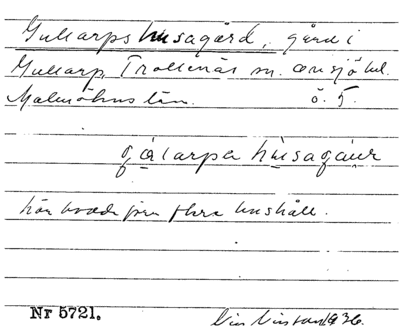 Gullarps husagård, gård i
Gullarp, Trollenäs sn. Onsjö hd.
Malmöhus län. ö. 5.
gǻlarpa hùsagáur
här bodde fem flera hushåll.
Nr 5721. 1936.